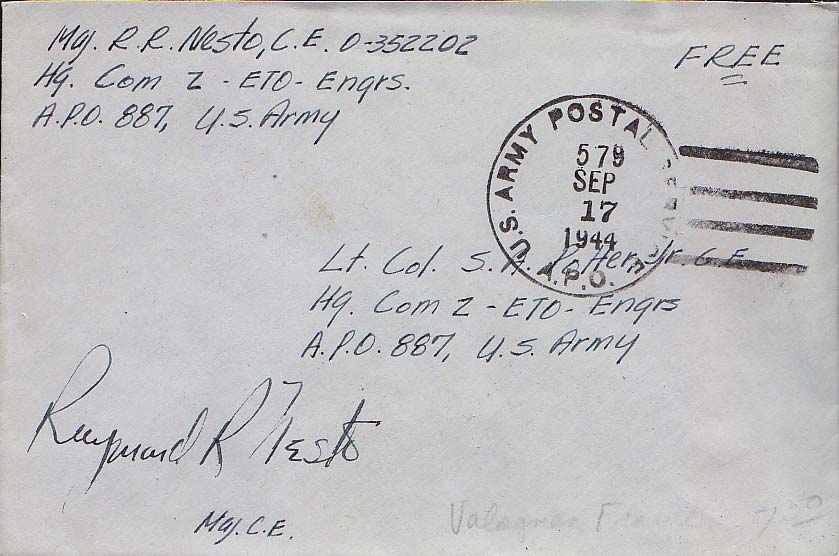 Maj. R. R. Nesto, C.E. O-352202
Hq. Com Z - ETO - Engrs.
A.P.O. 887, U.S. Army
FREE
U.S. ARMY POSTAL SERVICE
579
SEP
17
1944
A.P.O.
Lt. Col. S. A. Potter, Jr. C.E.
Hq. Com Z - ETO - Engrs
A.P.O. 887, U.S. Army
Raymond R Nesto
Maj. C.E.
France